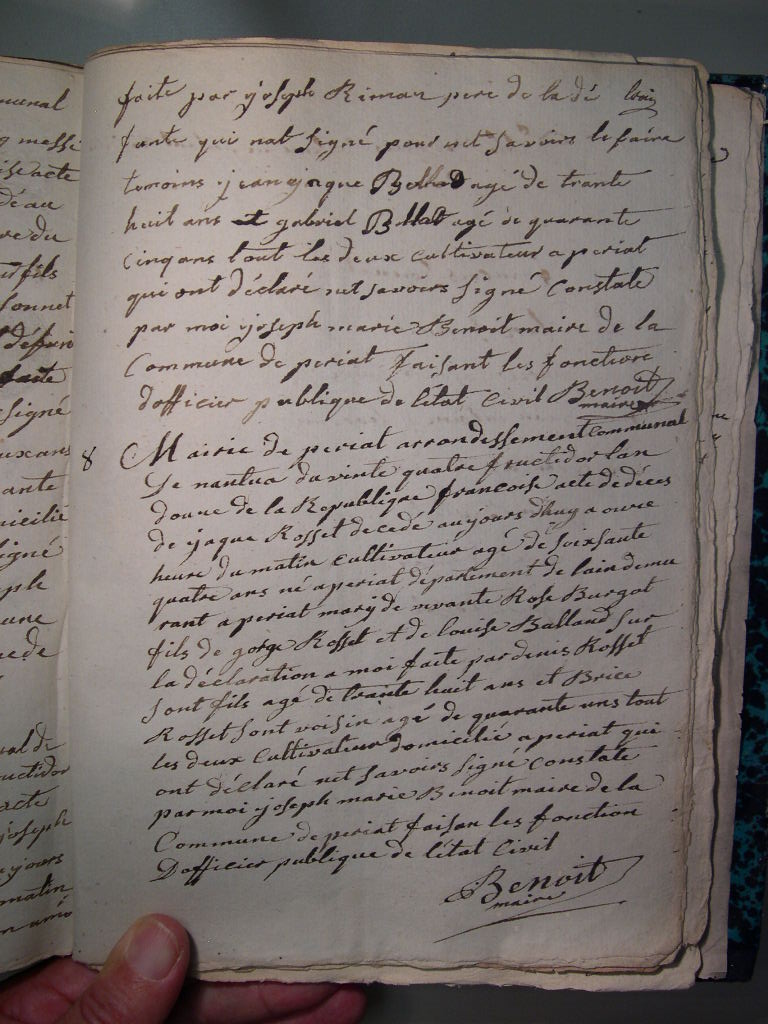 faite par joseph Rimar pere de la dé
funte qui nat signé pour net savoirs le faire
temoins jean jaque Bellod agé de trante
huit ans et gabriel Bellod agé de quarante
Cinq ans tout les deux Cultivateur a periat
qui ont déclaré net savoirs signé Constate
par moi joseph marie Benoit maire de la
Commune de periat faisant les fonctions
dofficier publique de létat Civil Benoit
maire
8 Mairie de periat arrondissement Communal
De nantua du vinte quatre fructidor lan
douze de la Republique francoise acte de déces
de jaque Rosset decedé aujours dhuy a onze
heure du matin Cultivateur agé de soixsante
quatre ans né a periat département de lain demu
rant a periat mary de vivante Rose Burgot
fils de gorge Rosset et de louise Balland sur
la déclaration a moi faite par denis Rosset
sont fils agé de trante huit ans et Brice
Rosset sont voisin agé de quarante uns tout
les deux Cultivateur domicilié a periat qui
ont déclaré net savoirs signé Constate
par moi joseph marie Benoit maire de la
Commune de periat faisan les fonction
Dofficier publique de létat Civil
Benoit
maire
munal
iseacte
déau
re du
fils
sonnet
faite
signé
ux ans
ante
micilié
igné
eph
une
ede
al de
uctidor
acte
joseph
jours
matin